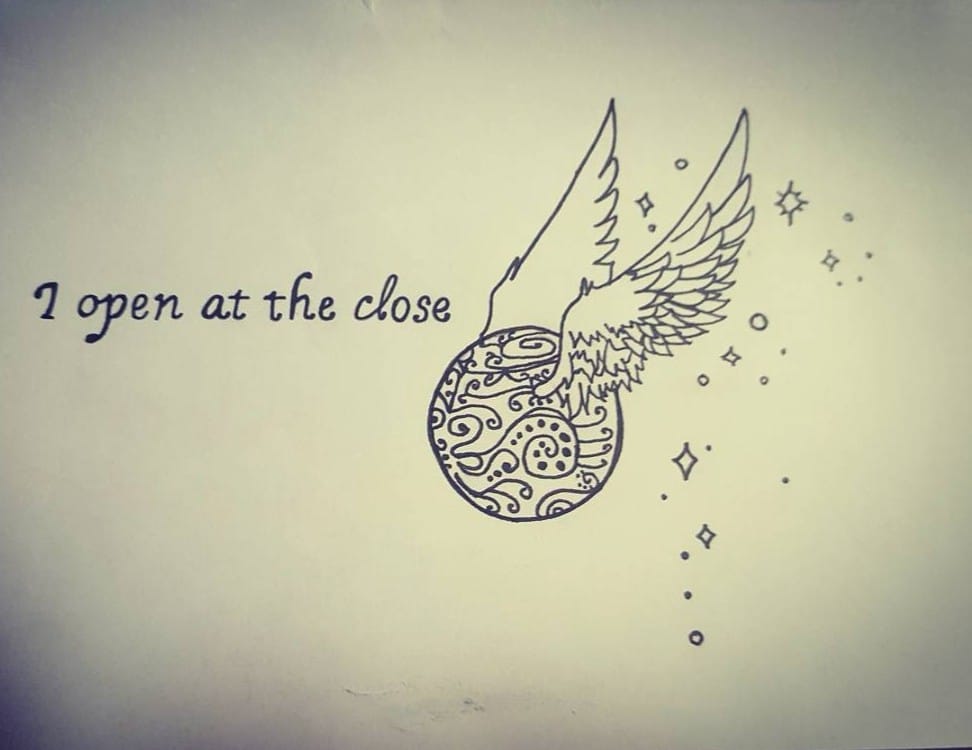 I open at the close